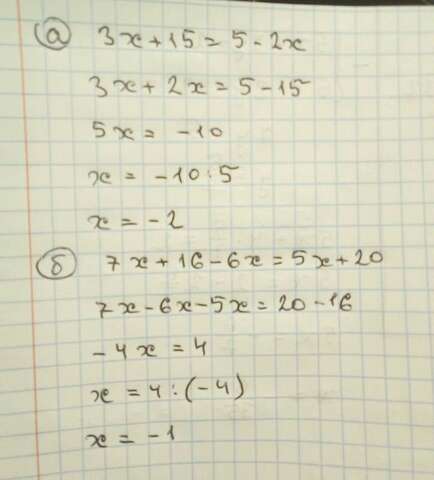 а) 3x+15=5-2x
3x+2x=5-15
5x=-10
x=-10:5
x=-2
б) 7x+16-6x=5x+20
7x-6x-5x=20-16
-4x=4
x=4:(-4)
x=-1